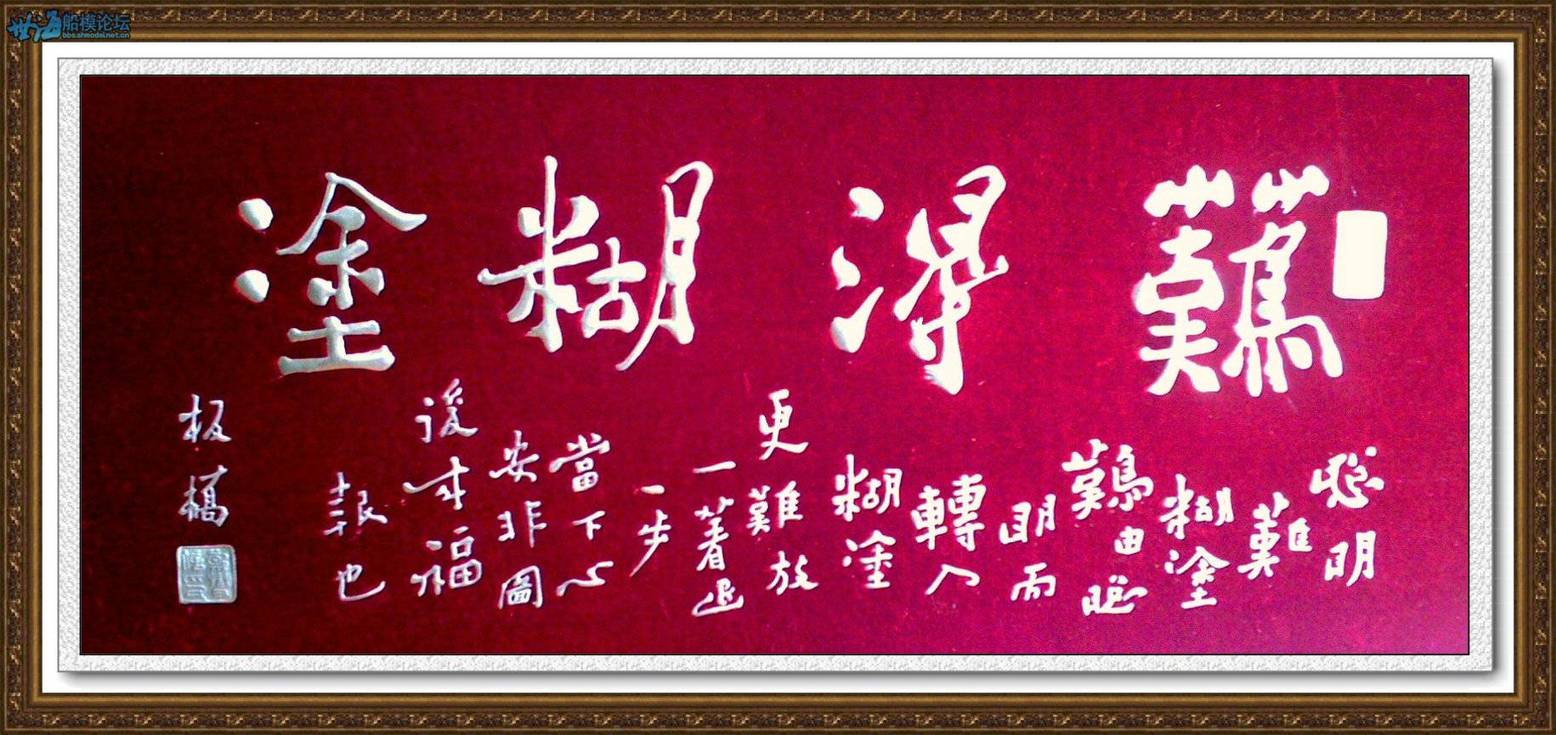 難得糊塗
聰明
難
糊塗
難由聰
明而
轉入
糊塗
更難放
一著退
一步
當下心
安非圖
後來福
報也
板橋
世海船模论坛
bbs.shmodel.net.cn